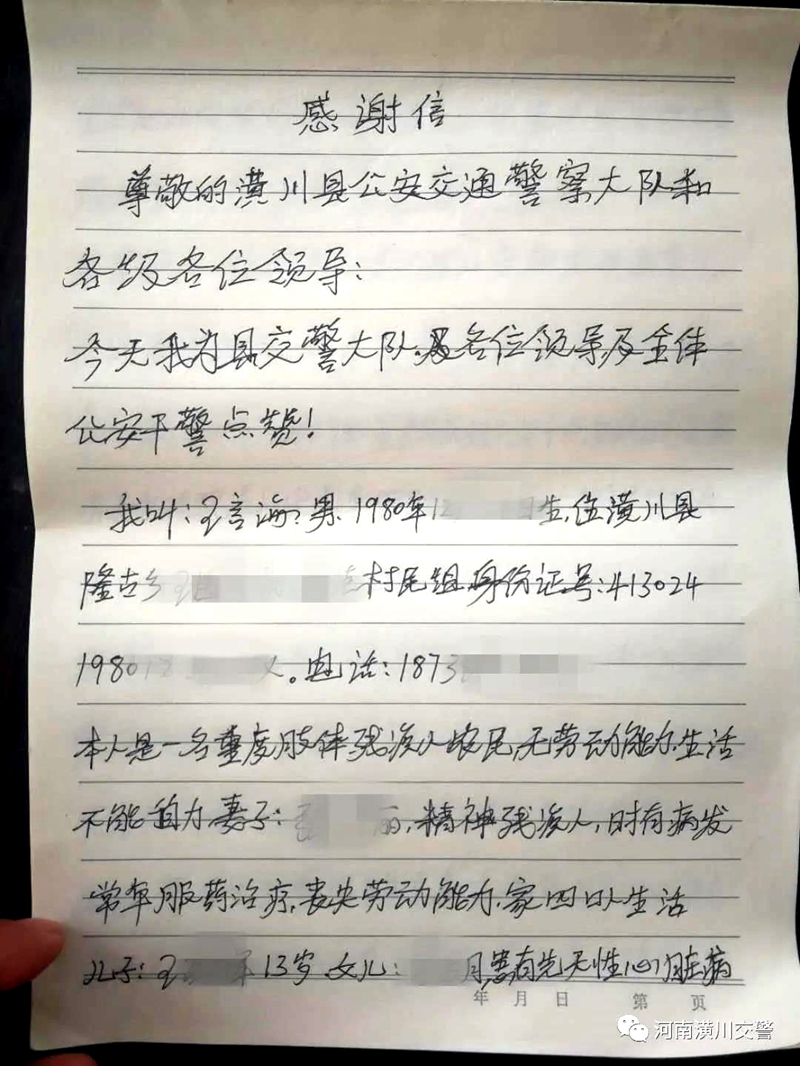 感谢信
尊敬的潢川县公安交通警察大队和
各级各位领导:
今天我为县交警大队及各位领导及全体
公安干警点赞!
我叫:王言海,男.1980年12 日生,住潢川县
隆古乡王 村民组.身份证号:413024
198012 X。电话:1873
本人是一名重度肢体残疾人农民,无劳动能力.生活
不能自力.妻子: 丽,精神残疾人,时有病发
常年服药治疗,丧失劳动能力.家四口人生活
儿子:王 13岁 女儿: 月,患有先天性心脏病
年 月 日 第 页
河南潢川交警